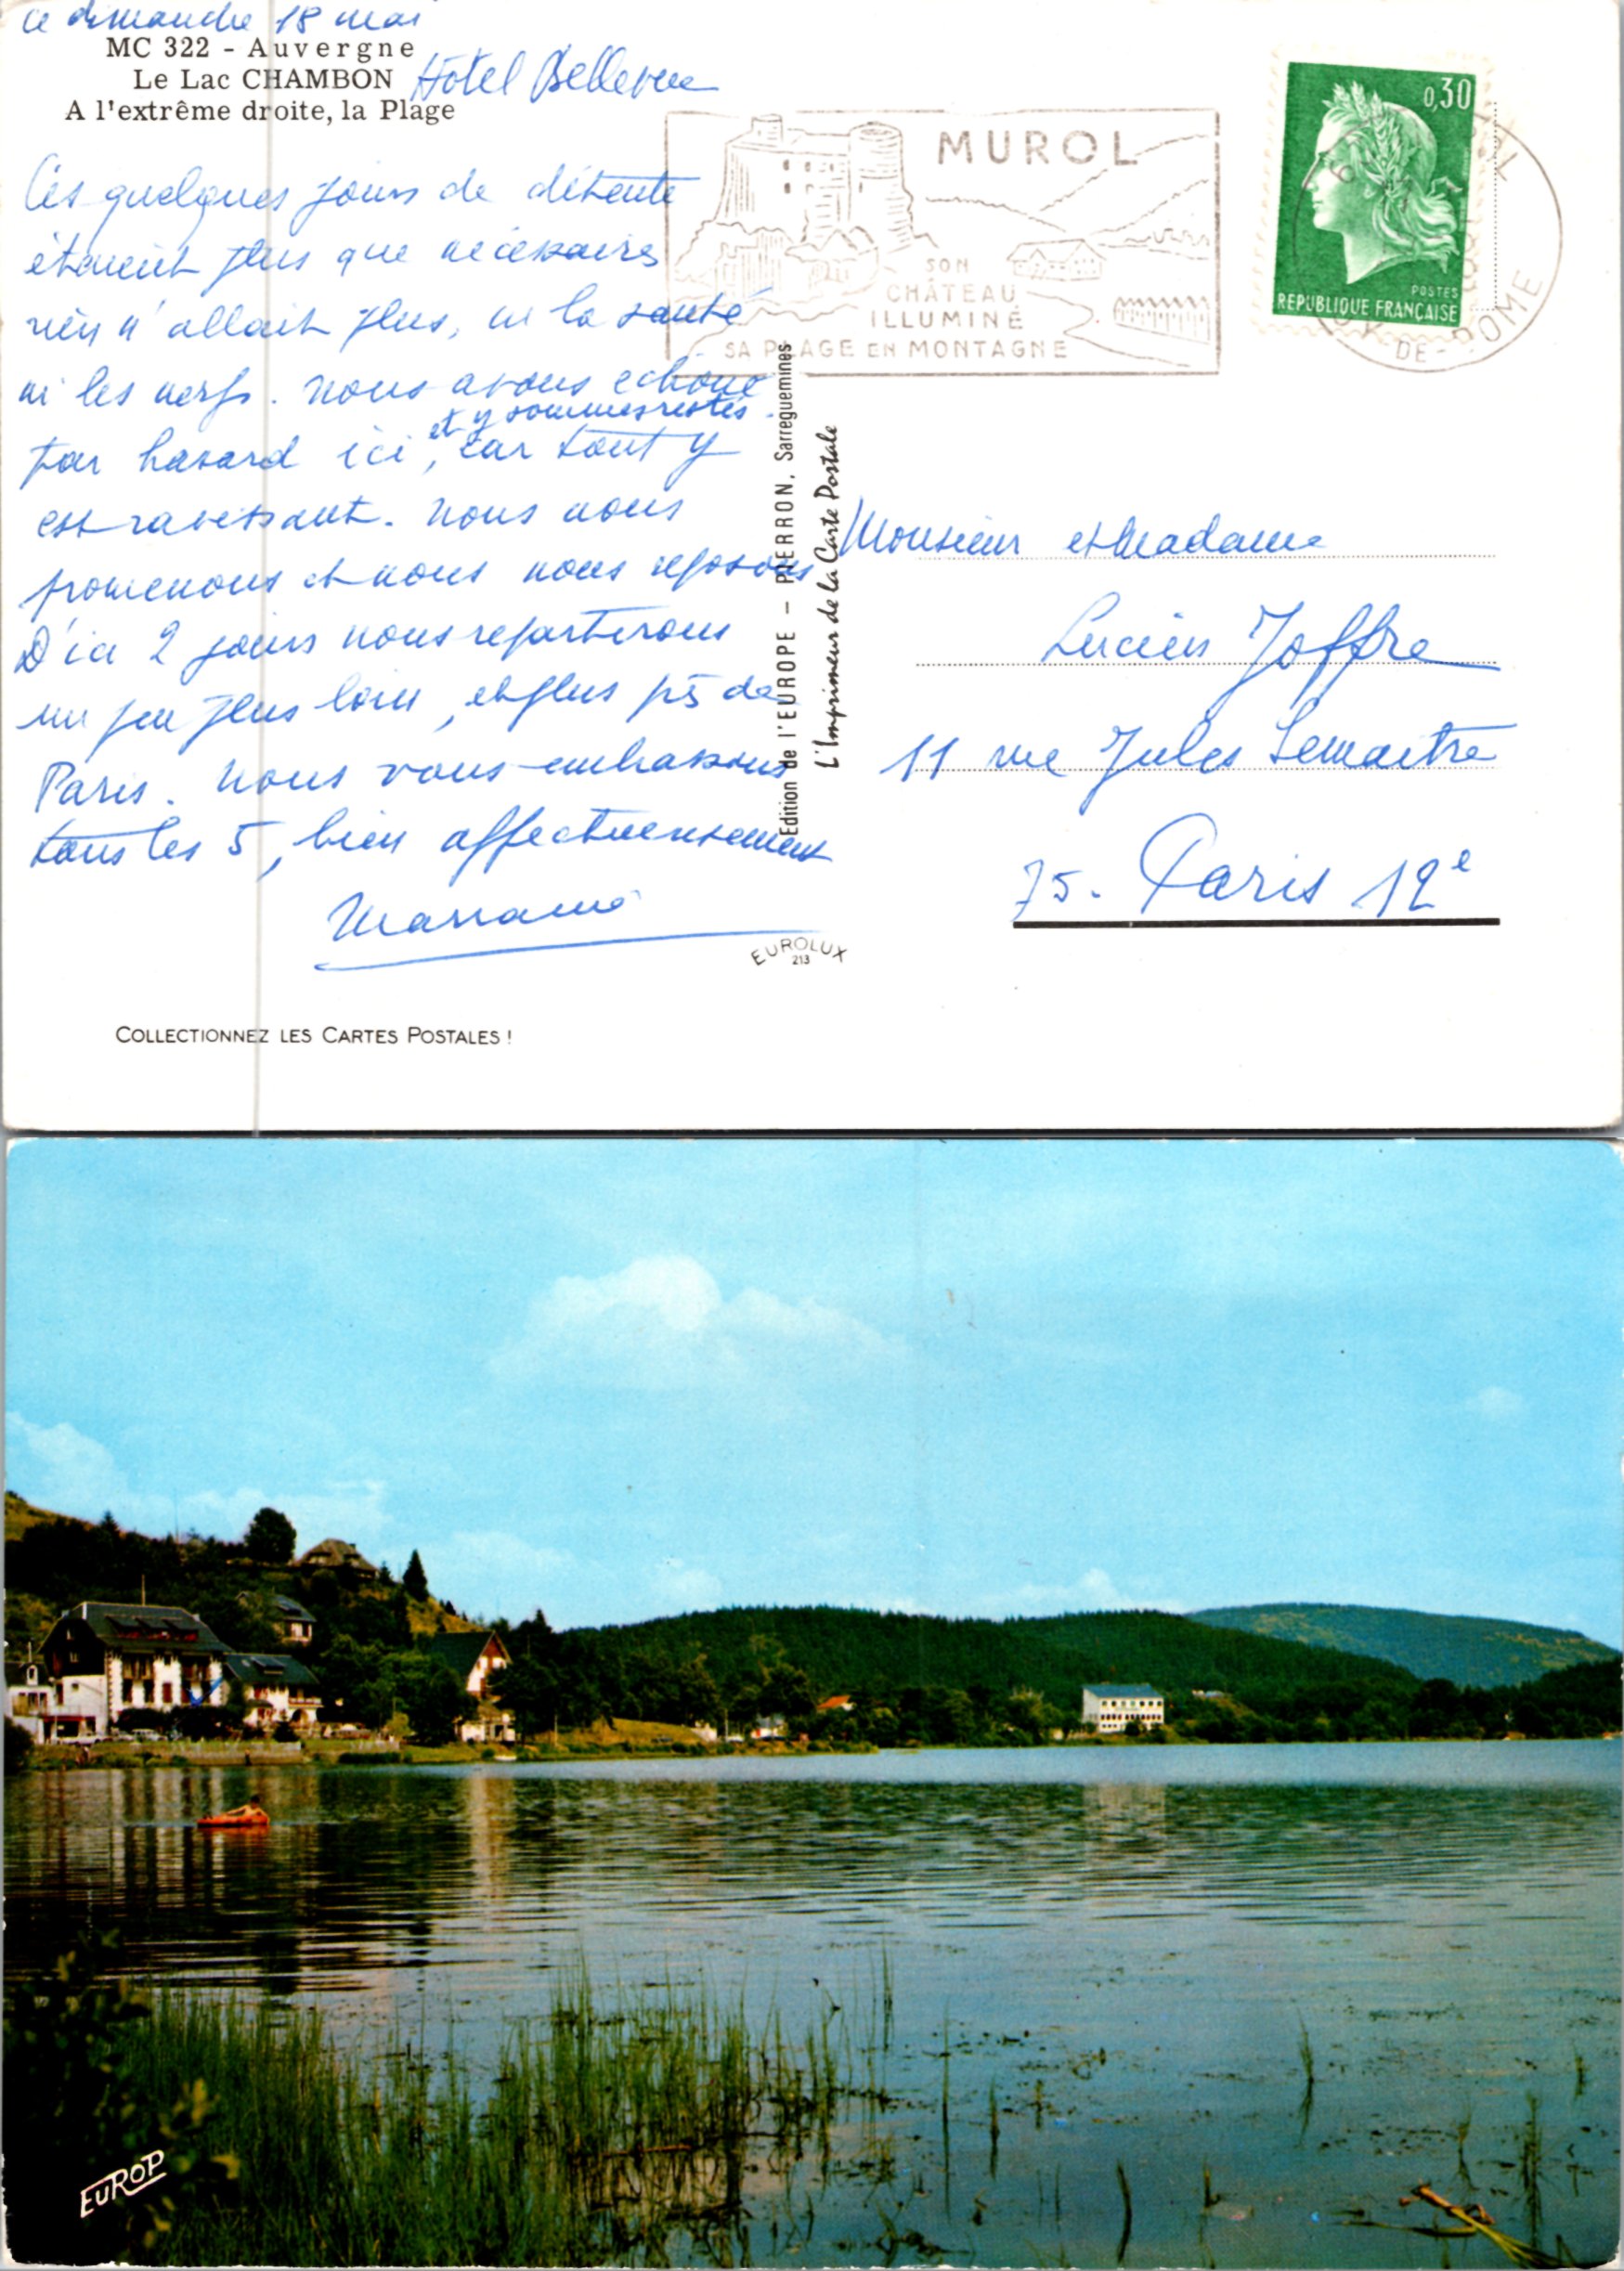 ce dimanche 18 mai
MC 322 - Auvergne
Le Lac CHAMBON
A l'extrême droite, la Plage
Hôtel Bellevue
Ces quelques jours de détente
étaient plus que nécessaires
rien n'allait plus, ni la santé
ni les nerfs. Nous avons echoué
et y sommes restés.
par hasard ici, car tout y
est ravissant. Nous nous
promenons et nous nous reposons
D'ici 2 jours nous repartirons
un peu plus loin, et plus près de
Paris. Nous vous embrassons
tous les 5, bien affectueusement
COLLECTIONNEZ LES CARTES POSTALES !
EUROLUX
213
Edition de l'EUROPE – PIERRON, Sarreguemines
L'Imprimeur de la Carte Postale
MUROL
SON
CHÂTEAU
ILLUMINÉ
SA PLAGE EN MONTAGNE
0,30
POSTES
REPUBLIQUE FRANÇAISE
DE-DOME
Monsieur et Madame
Lucien Joffre
11 rue Jules Lemaitre
75. Paris 12e
EUROP